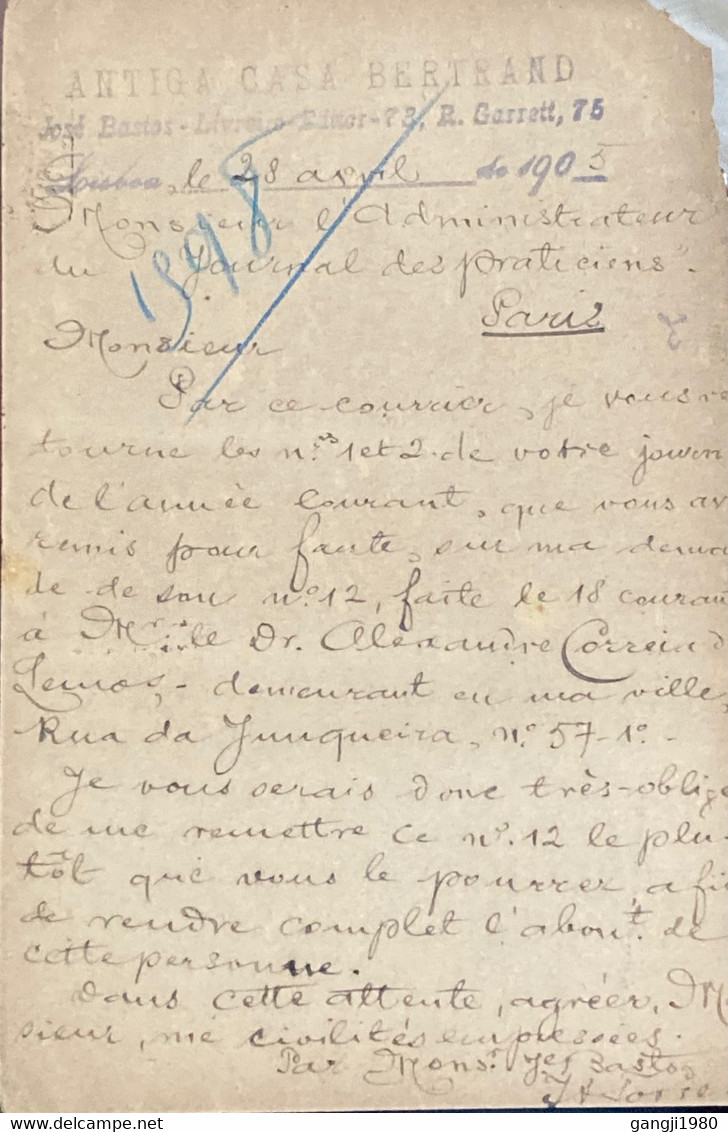 ANTIGA CASA BERTRAND
José Bastos - Livreiro-Editor - 73, R. Garrett, 75
Lisboa, le 28 avril de 1905
1598
Monsieur l'Administrateur
du "Journal des praticiens".
Paris
Monsieur
Par ce courrier, je vous re
tourne les n.os 1 et 2 de votre journ
de l'année courant, que vous av
remis pour faute, sur ma deman
de de son n.º 12, faite le 18 couran
à Mr. le Dr. Alexandre Correia d
Lemos, - demeurant en ma ville,
Rua da Junqueira, n.º 57-1.º -
Je vous serais donc très-oblig
de me remettre ce n.º 12 le plu
tôt que vous le pourrer, afi
de rendre complet l'abon.t de
cette personne.
Dans cette attente, agréer, M
sieur, me civilités empressées.
Par Mons.r Bastos
gangji1980